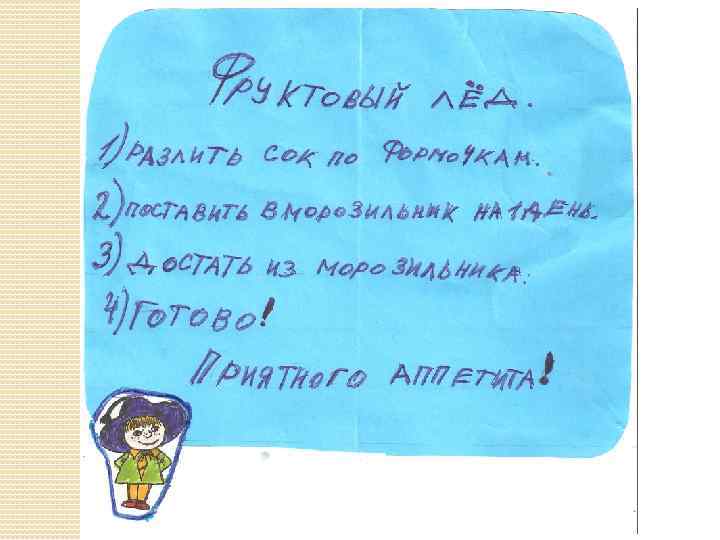 Фруктовый лёд.
1) Разлить сок по формочкам.
2) поставить в морозильник на 1 день.
3) Достать из морозильника.
4) Готово!
Приятного аппетита!